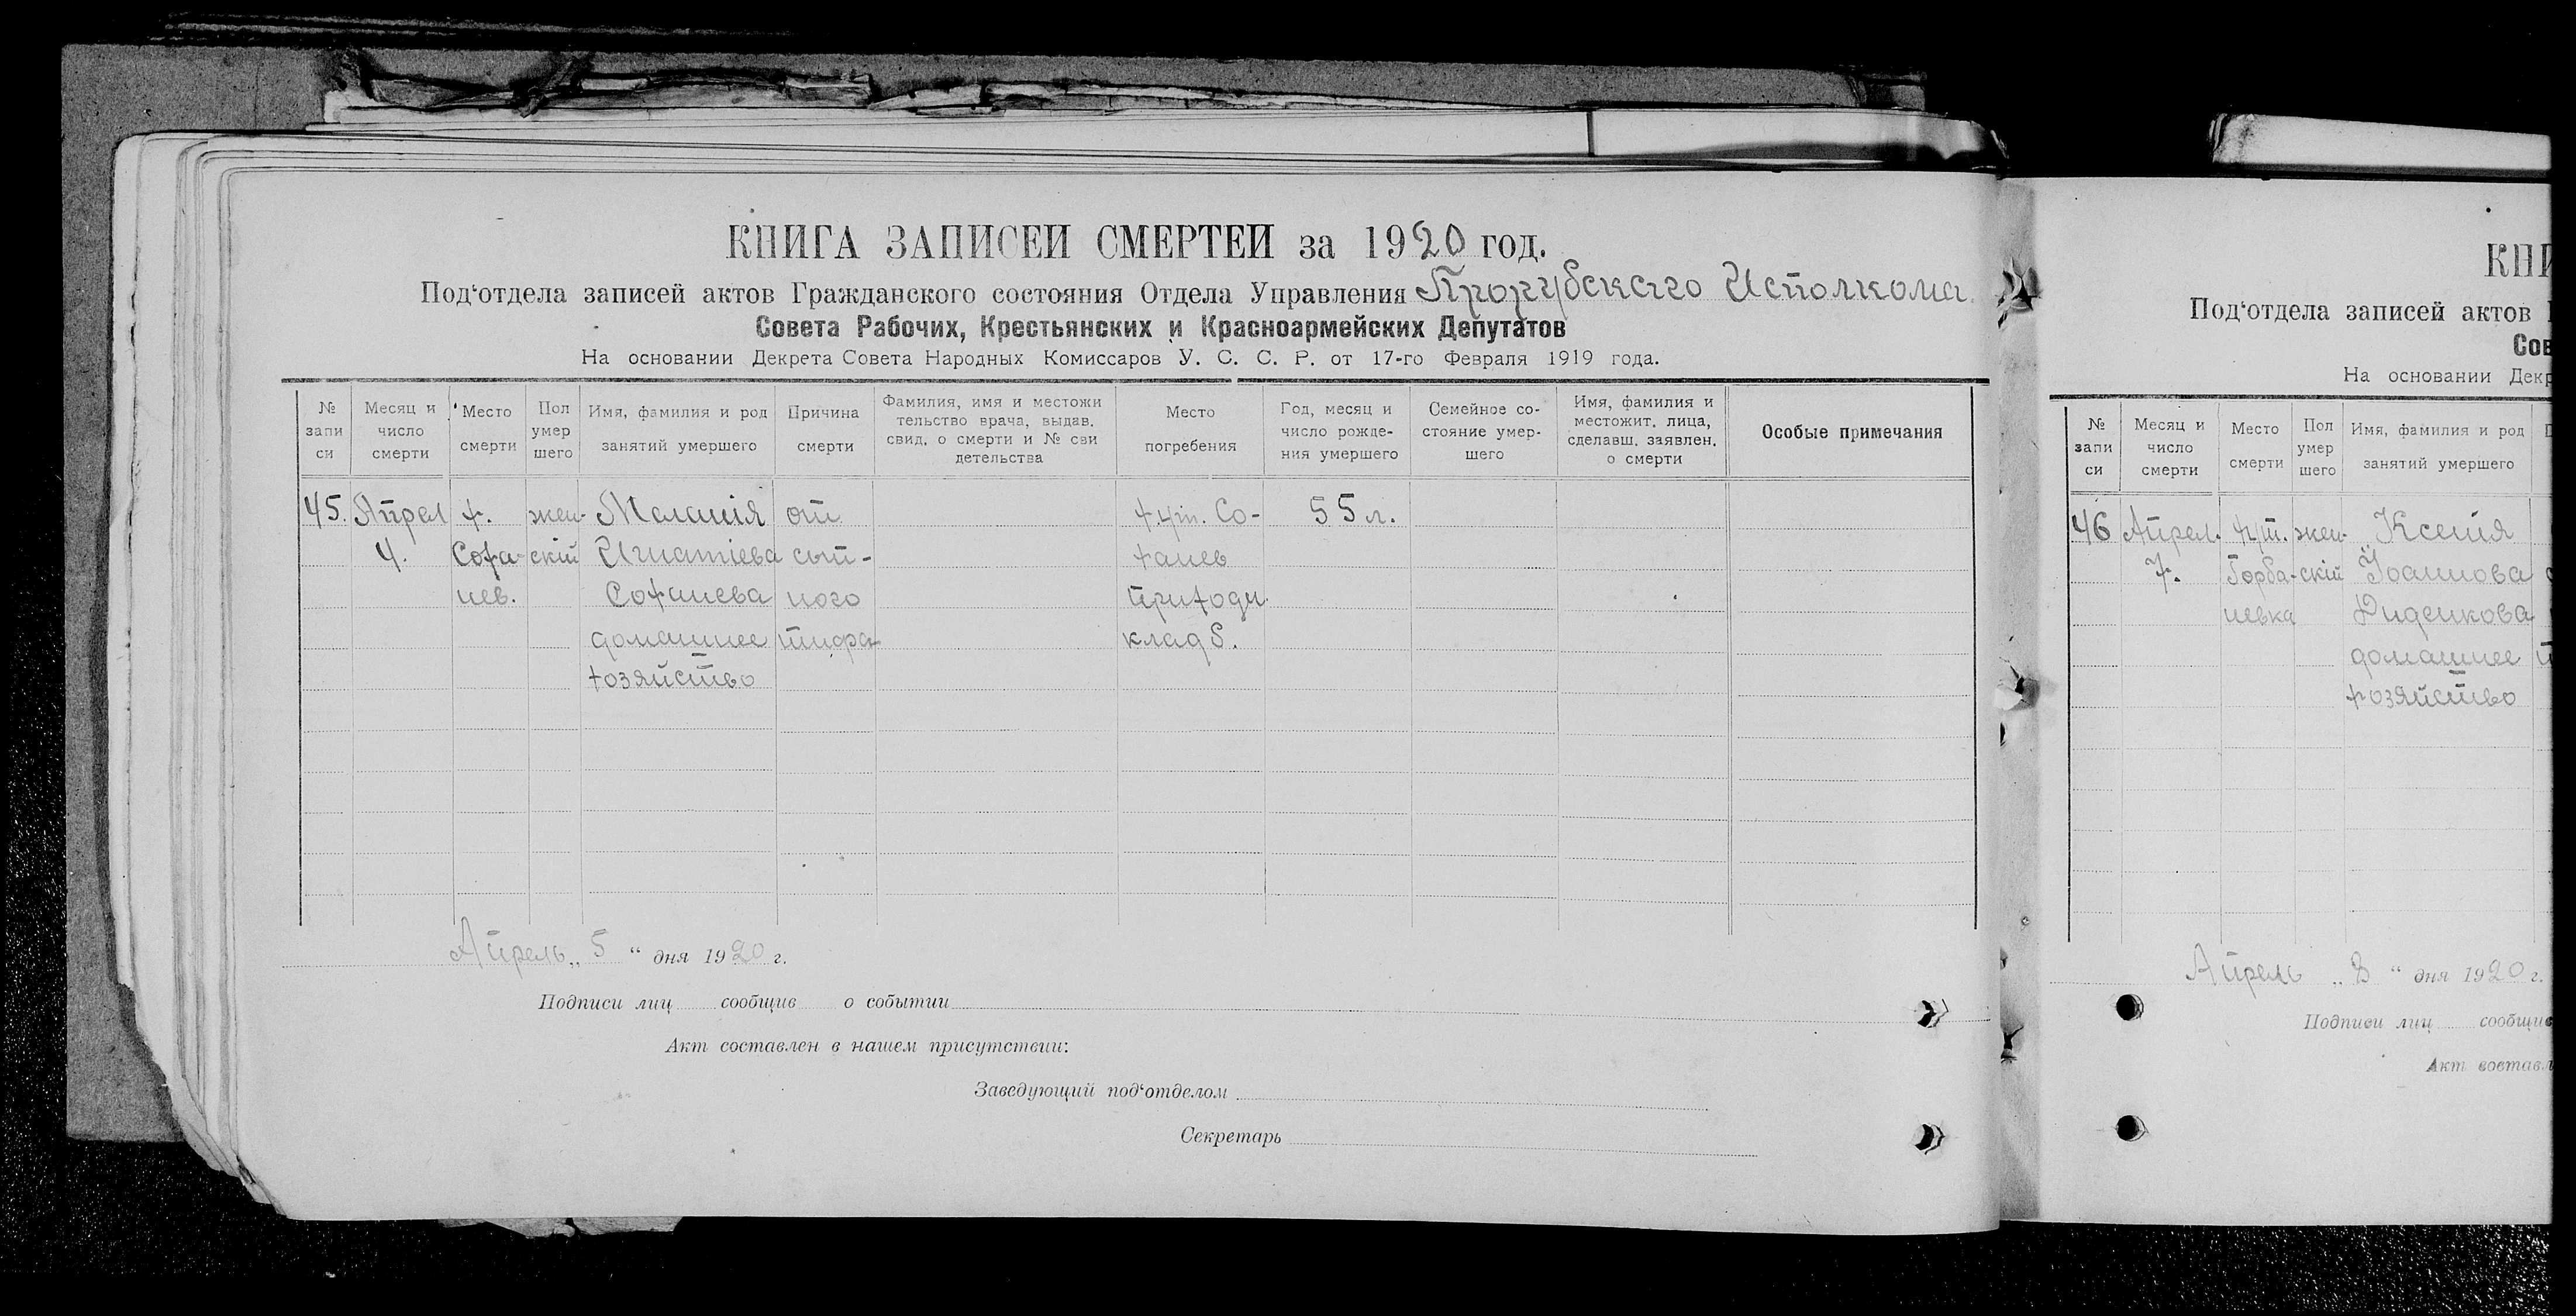 КНИГА ЗАПИСЕЙ СМЕРТЕЙ за 1920 год.
Под‘отдела записей актов Гражданского состояния Отдела Управления Прорубскаго Исполкома
Совета Рабочих, Крестьянских и Красноармейских Депутатов
На основании Декрета Совета Народных Комиссаров У. С. С. Р. от 17-го Февраля 1919 года.
№ запи си
Месяц и число смерти
Место смерти
Пол умер шего
Имя, фамилия и род занятий умершего
Причина смерти
Фамилия, имя и местожи тельство врача, выдав. свид. о смерти и № сви детельства
Место погребения
Год, месяц и число рожде- ния умершего
Семейное со- стояние умер- шего
Имя, фамилия и местожит. лица, сделавш. заявлен. о смерти
Особые примечания
45. Апрел х. жен- Меланія от хут. Со- 55 л.
4. Соха- скій Игнатіева сып- ханев
нев. Соханева ного приходск.
домашнее тифа клад
хозяйство
Апрель „ 5 “ дня 1920 г.
Подписи лиц сообщив о событии
Акт составлен в нашем присутствии:
Заведующий под‘отделом
Секретарь
КНИ
Под‘отдела записей актов
Сов
На основании Декр
№ запи си
Месяц и число смерти
Место смерти
Пол умер шего
Имя, фамилия и род занятий умершего
46 Апрел. хут. жен- Ксенія
7. Горба- скій Іоаннова
невка Диденкова
домашнее
хозяйство
Апрель „ 8 “ дня 1920 г.
Подписи лиц сообщив
Акт составл